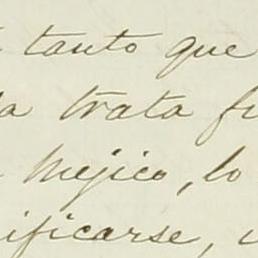 tanto que
la trata fu
Mejico, lo
ificarse,